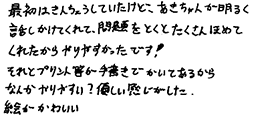 最初はきんちょうしていたけど、あきちゃんが明るく
話しかけてくれて、問題をとくとたくさんほめて
くれたからやりやすかったです!
それとプリント等が手書きでかいてあるから
なんかやりやすい?優しい感じがした.
絵がかわいい